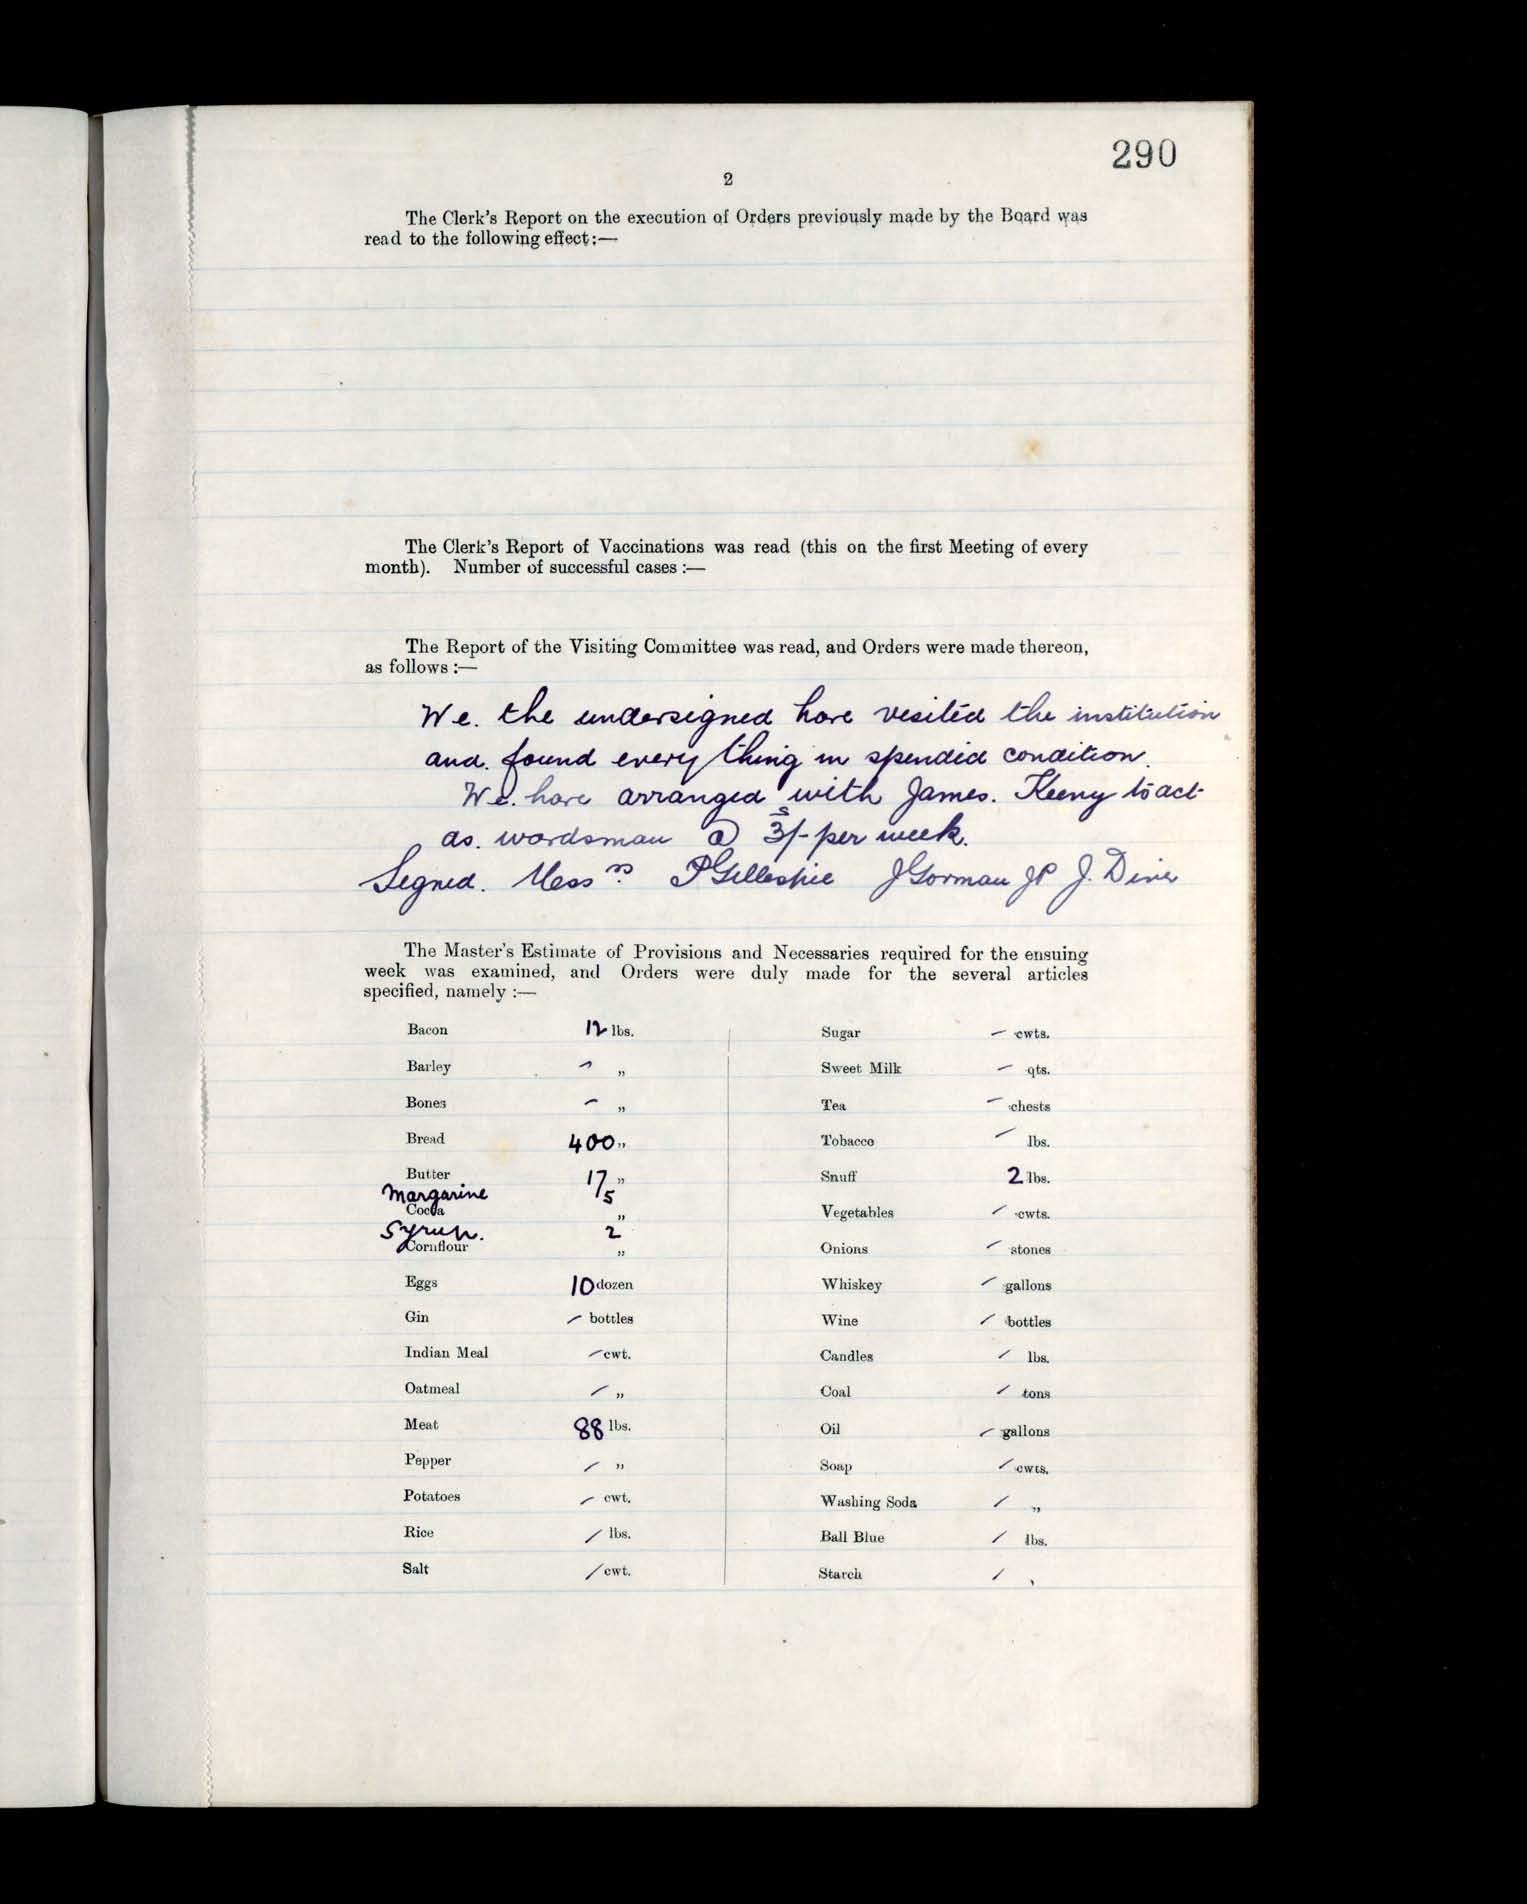 290
2
The Clerk's Report on the execution of Orders previously made by the Board was
read to the following effect:—
The Clerk's Report of Vaccinations was read (this on the first Meeting of every
month). Number of successful cases :—
The Report of the Visiting Committee was read, and Orders were made thereon,
as follows :—
We. the undersigned have visited the institution
and. found every thing in spendid condition.
We. have arranged with James. Keeny to act
as. wardsman @ 3s/- per week.
Signed. Messrs. P Gillespie J Gorman JP J. Diver
The Master's Estimate of Provisions and Necessaries required for the ensuing
week was examined, and Orders were duly made for the several articles
specified, namely :—
Bacon 12 lbs.
Barley – „
Bones – „
Bread 400 „
Butter 17 „
Margarine 5
Cocoa „
Syrup. 2
Cornflour „
Eggs 10 dozen
Gin – bottles
Indian Meal – cwt.
Oatmeal – „
Meat 88 lbs.
Pepper – „
Potatoes – cwt.
Rice – lbs.
Salt – cwt.
Sugar – cwts.
Sweet Milk – qts.
Tea – chests
Tobacco – lbs.
Snuff 2 lbs.
Vegetables – cwts.
Onions – stones
Whiskey – gallons
Wine – bottles
Candles – lbs.
Coal – tons
Oil – gallons
Soap – cwts.
Washing Soda – „
Ball Blue – lbs.
Starch – ,